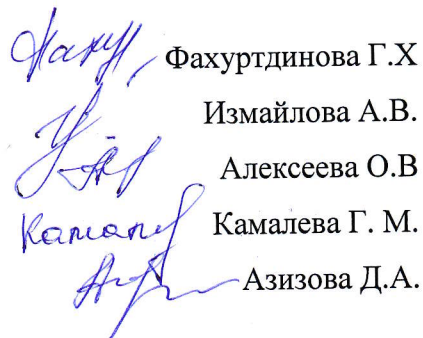 Фахуртдинова Г.Х
Измайлова А.В.
Алексеева О.В
Камалева Г. М.
Азизова Д.А.